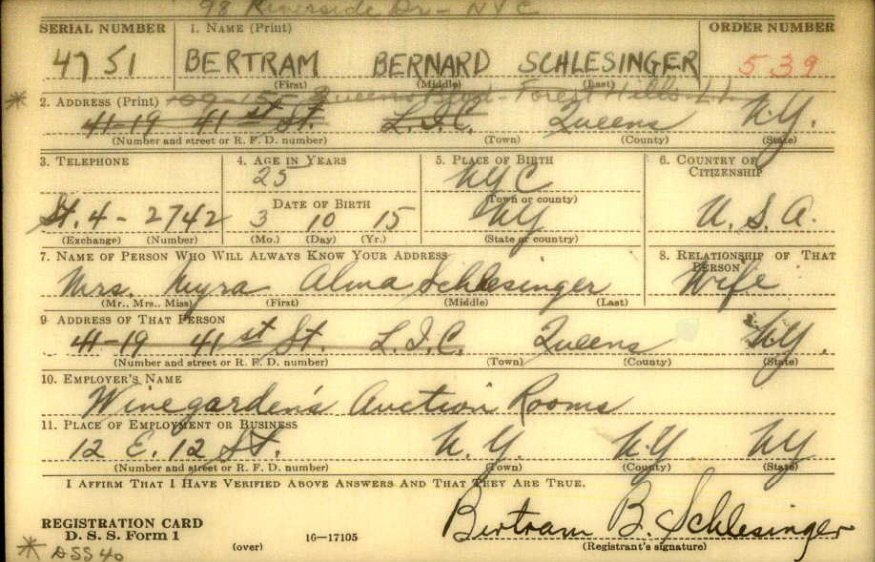 98 Riverside Dr - NYC
SERIAL NUMBER 1. NAME (Print) ORDER NUMBER
4751 BERTRAM BERNARD SCHLESINGER 539
(First) (Middle) (Last)
* 2. ADDRESS (Print) 109-15 Queens Blvd - Forest Hills L.I.
41-19 41st St. L.I.C. Queens N.Y.
(Number and street or R. F. D. number) (Town) (County) (State)
3. TELEPHONE 4. AGE IN YEARS 5. PLACE OF BIRTH 6. COUNTRY OF CITIZENSHIP
25 NYC
DATE OF BIRTH (Town or county)
St. 4-2742 3 10 15 NY U.S.A.
(Exchange) (Number) (Mo.) (Day) (Yr.) (State or country)
7. NAME OF PERSON WHO WILL ALWAYS KNOW YOUR ADDRESS 8. RELATIONSHIP OF THAT PERSON
Mrs. Myra Alma Schlesinger Wife
(Mr., Mrs., Miss) (First) (Middle) (Last)
9 ADDRESS OF THAT PERSON
41-19 41st St. L.I.C. Queens N.Y.
(Number and street or R. F. D. number) (Town) (County) (State)
10. EMPLOYER'S NAME
Winegarden's Auction Rooms
11. PLACE OF EMPLOYMENT OR BUSINESS
12 E. 12 St. N.Y. N.Y. NY
(Number and street or R. F. D. number) (Town) (County) (State)
I AFFIRM THAT I HAVE VERIFIED ABOVE ANSWERS AND THAT THEY ARE TRUE.
Bertram B. Schlesinger
REGISTRATION CARD
D. S. S. Form 1 (over) 16-17105 (Registrant's signature)
* DSS 40